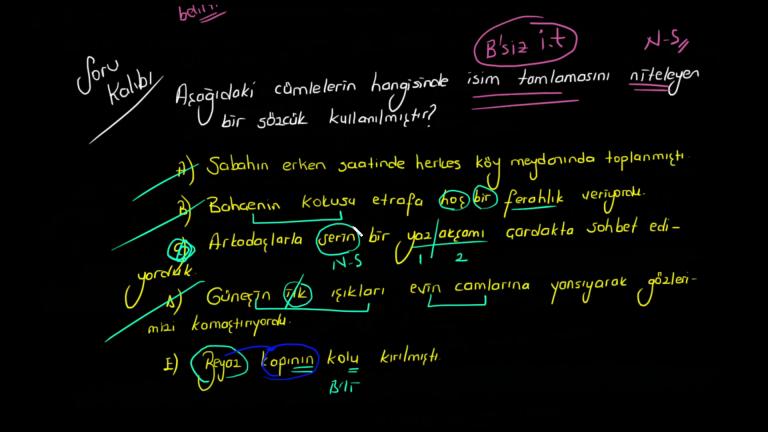 belirt.
B'siz i.t
N-S
Soru
Kalıbı
Aşağıdaki cümlelerin hangisinde isim tamlamasını niteleyen
bir sözcük kullanılmıştır?
A) Sabahın erken saatinde herkes köy meydanında toplanmıştı.
B) Bahçenin kokusu etrafa hoş bir ferahlık veriyordu.
C) Arkadaşlarla serin bir yaz akşamı çardakta sohbet edi-
N-S 1 2
yorduk.
D) Güneşin ilk ışıkları evin camlarına yansıyarak gözleri-
mizi kamaştırıyordu.
E) Beyaz kapının kolu kırılmıştı.
BİT